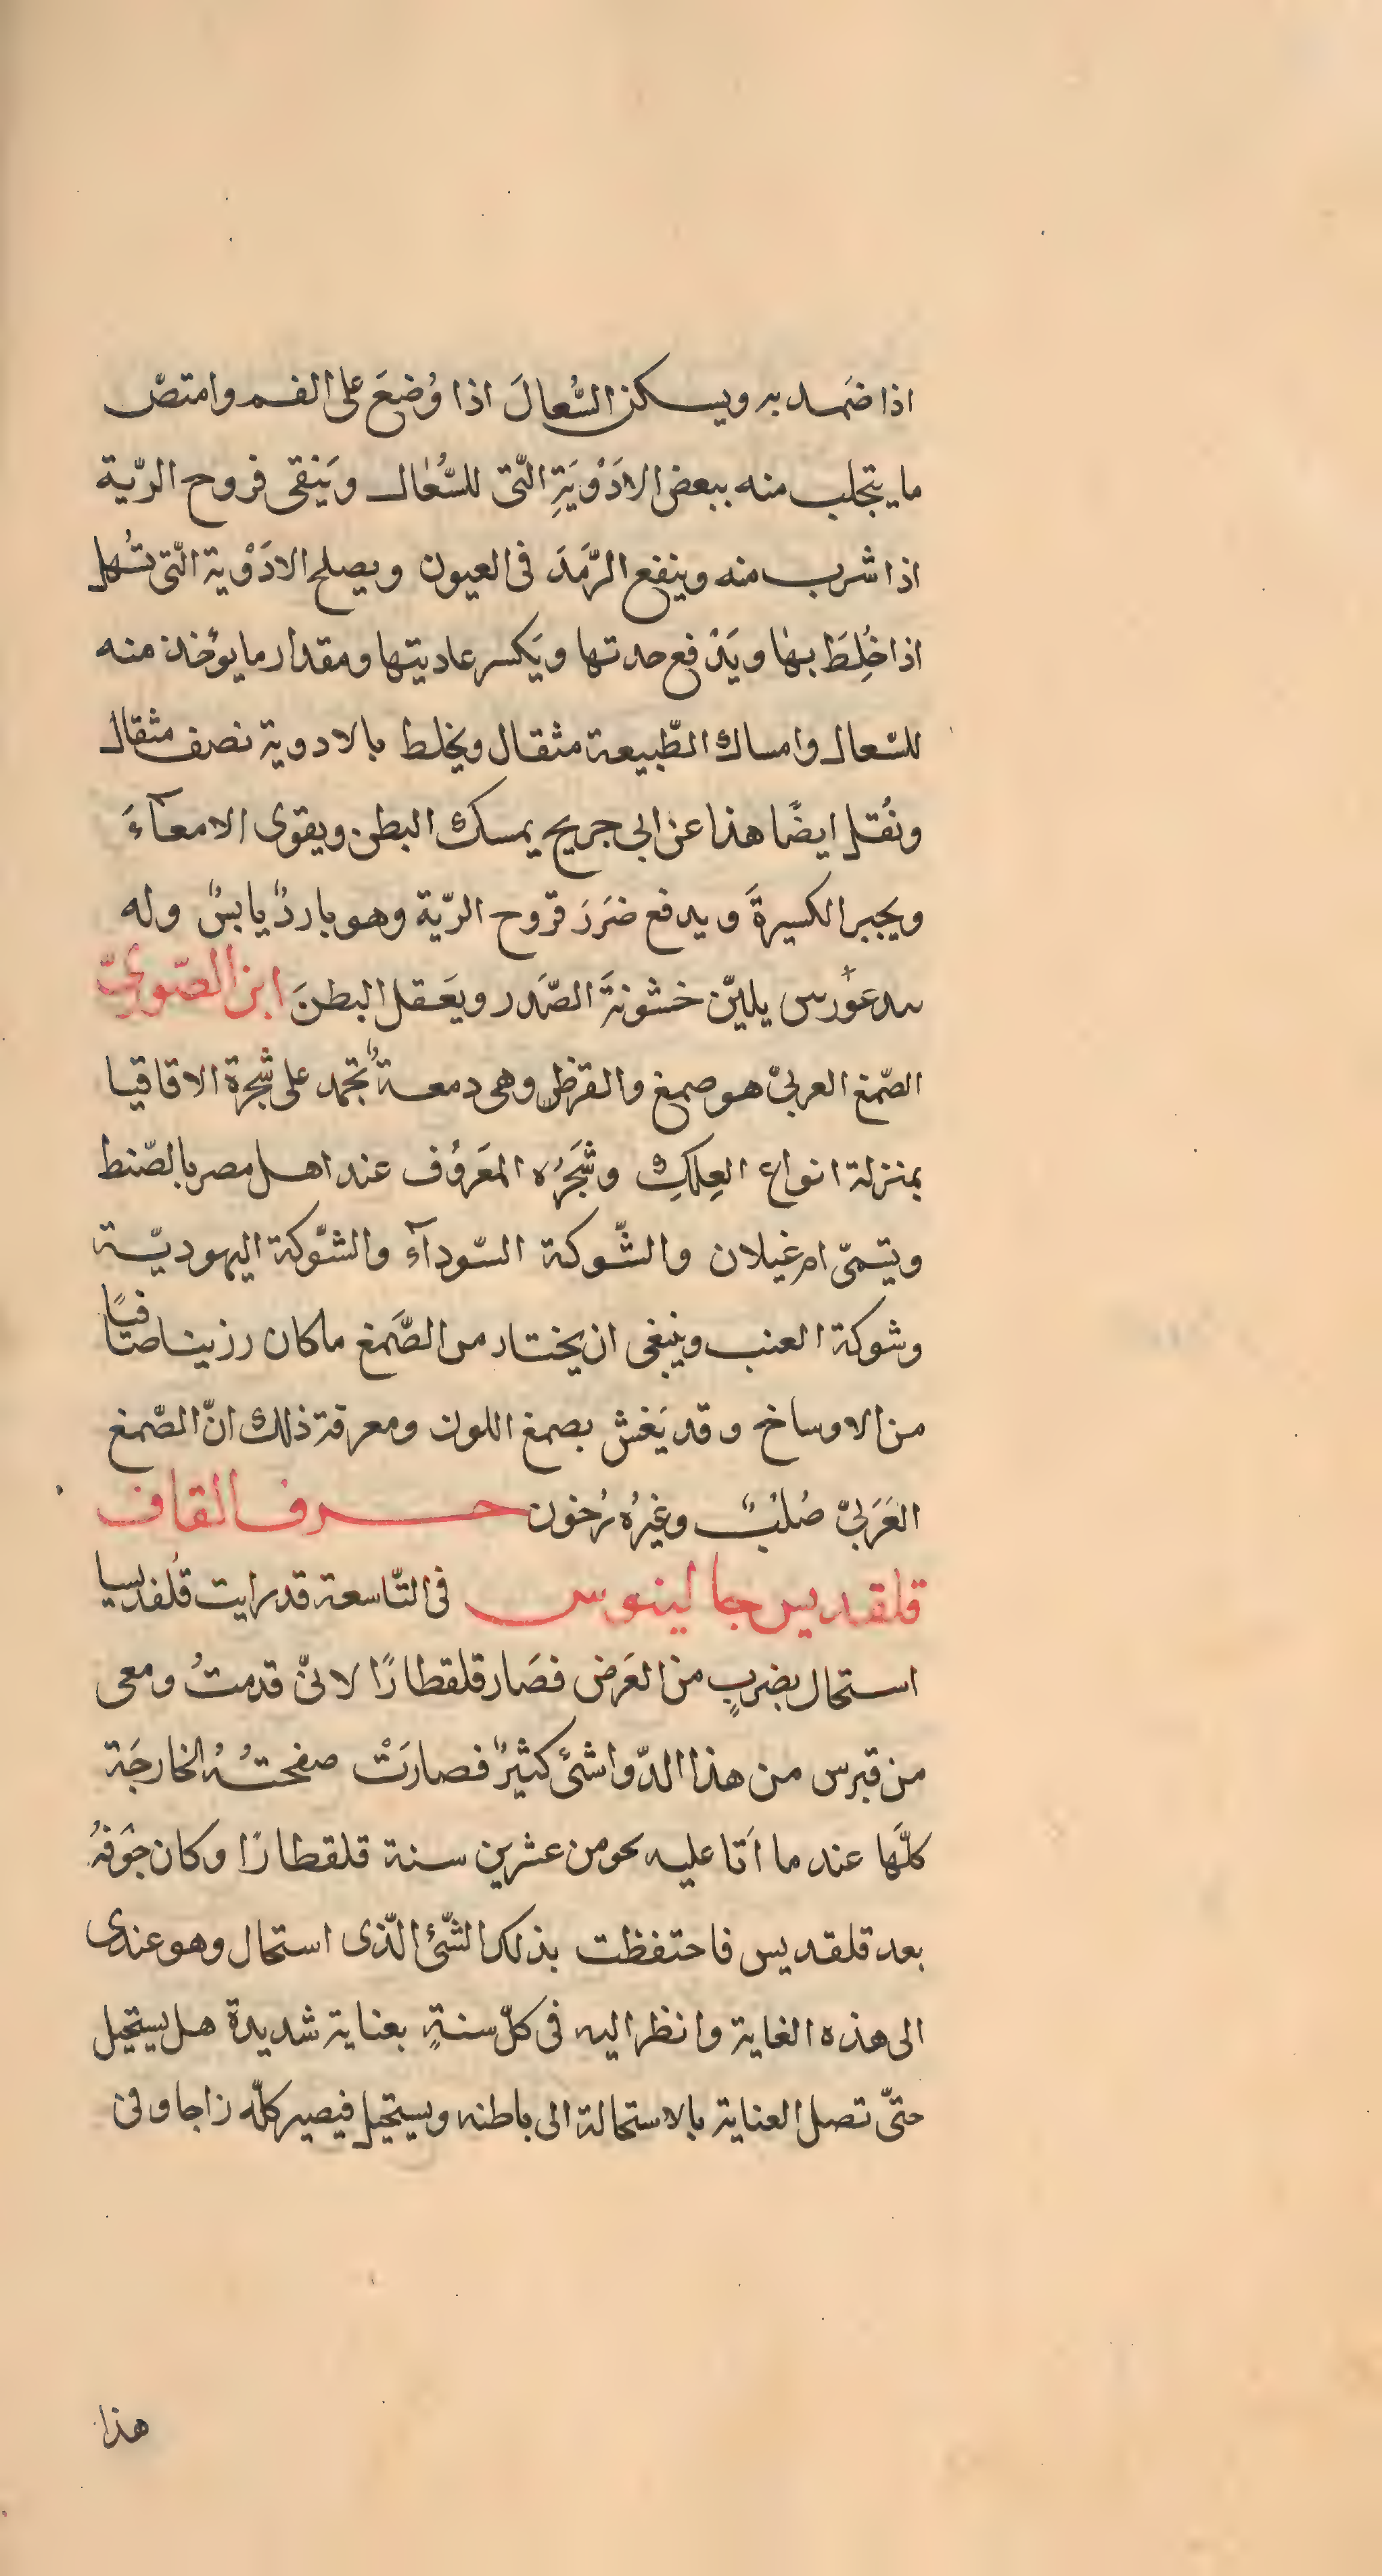 اذا ضَمد به ويسكن السُّعالَ اذا وُضعَ على الفم وامتصّ
ما يتجلب منه ببعض الادَوْيَةِ الّتى للسُّعال ويَنقى قروح الريّة
اذا شرب منه وينفع الرَّمَدَ فى العيون ويصلح الادَوْية الّتى تسُهل
اذا خُلِطَ بها ويَدْفع حدتها ويَكسر عاديتها ومقدار ما يوُخذ منه
للسّعال وامساك الطّبيعة مثقال ويخلط بالادوية نصف مثقال
ونُقل ايضًا هذا عن ابى جريح يمسك البطن ويقوى الامعآءَ
ويجبر الكسيرةَ ويدفع ضَرَرَ قروح الريّة وهو باردٌ يابسٌ وله
يليّن خشونةَ الصَّدر ويعَقل البطنَ ابن الصّورىّ
الصّمغ العربىْ هو صمغ والقرظ وهى دمعةٌ تجمد على شجرة الاقاقيا
بمنزلة انواع العِلكِ وشَجَرُه المعَروُف عند اهل مصر بالصّنط
ويتسمّى ام غيلان والشّوكة السّودآء والشّوكة اليهوديّة
وشوكة العنب وينبغى ان يختار من الصَّمغ ماكان رزينا صافيًا
من الاوساخ وقد يَغش بصمغ اللون ومعرفة ذلك انّ الصّمغ
العَرَبىّ صُلبٌ وغيرُه رُخون حرف القاف
قلقديس جالينوس فى التّاسعة قد رايت قُلقديسا
استحال بضربٍ من العَرض فصَار قلقطارًا لانىّ قدمتُ ومعى
من قبرس من هذا الدّوا شئ كثيرٌ فصارَتْ صفحتُهُ الخارجَة
كلَّها عند ما اَتا عليه نحو من عشرين سنة قلقطارًا وكان جَوَفهُ
بعد قلقديس فاحتفظت بذلك الشّئ الّذى استحال وهو عندى
الى هذه الغاية وانظر اليه فى كلّ سنةٍ بعناية شديدة هل يستحيل
حتىّ تصل العناية بالاستحالة الى باطنه ويستحيل فيصير كلّه زاجا وفى
هذا